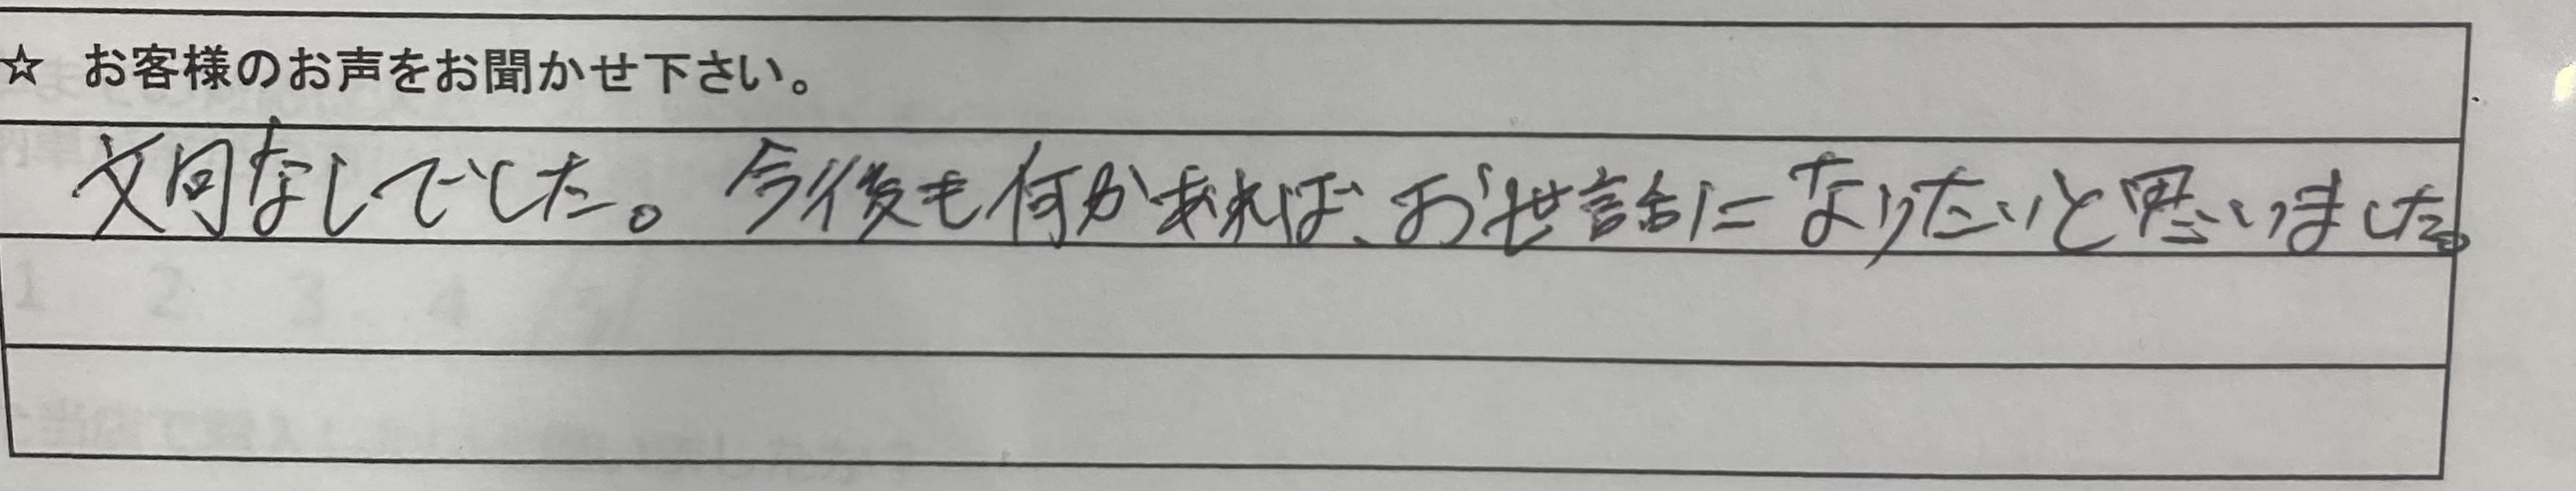 ☆ お客様のお声をお聞かせ下さい。
文句なしでした。今後も何かあれば、お世話になりたいと思いました。
1 2 3 4